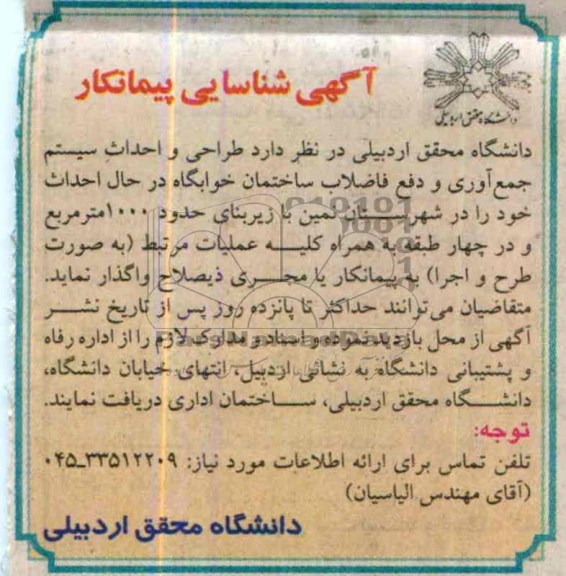 دانشگاه محقق اردبیلی
آگهی شناسایی پیمانکار
دانشگاه محقق اردبیلی در نظر دارد طراحی و احداث سیستم
جمع‌آوری و دفع فاضلاب ساختمان خوابگاه در حال احداث
خود را در شهرستان نمین با زیربنای حدود ۱۰۰۰مترمربع
و در چهار طبقه به همراه کلیه عملیات مرتبط (به صورت
طرح و اجرا) به پیمانکار یا مجری ذیصلاح واگذار نماید.
متقاضیان می‌توانند حداکثر تا پانزده روز پس از تاریخ نشر
آگهی از محل بازدید نموده و اسناد و مدارک لازم را از اداره رفاه
و پشتیبانی دانشگاه به نشانی اردبیل، انتهای خیابان دانشگاه،
دانشگاه محقق اردبیلی، ساختمان اداری دریافت نمایند.
توجه:
تلفن تماس برای ارائه اطلاعات مورد نیاز: ۳۳۵۱۲۲۰۹-۰۴۵
(آقای مهندس الیاسیان)
دانشگاه محقق اردبیلی